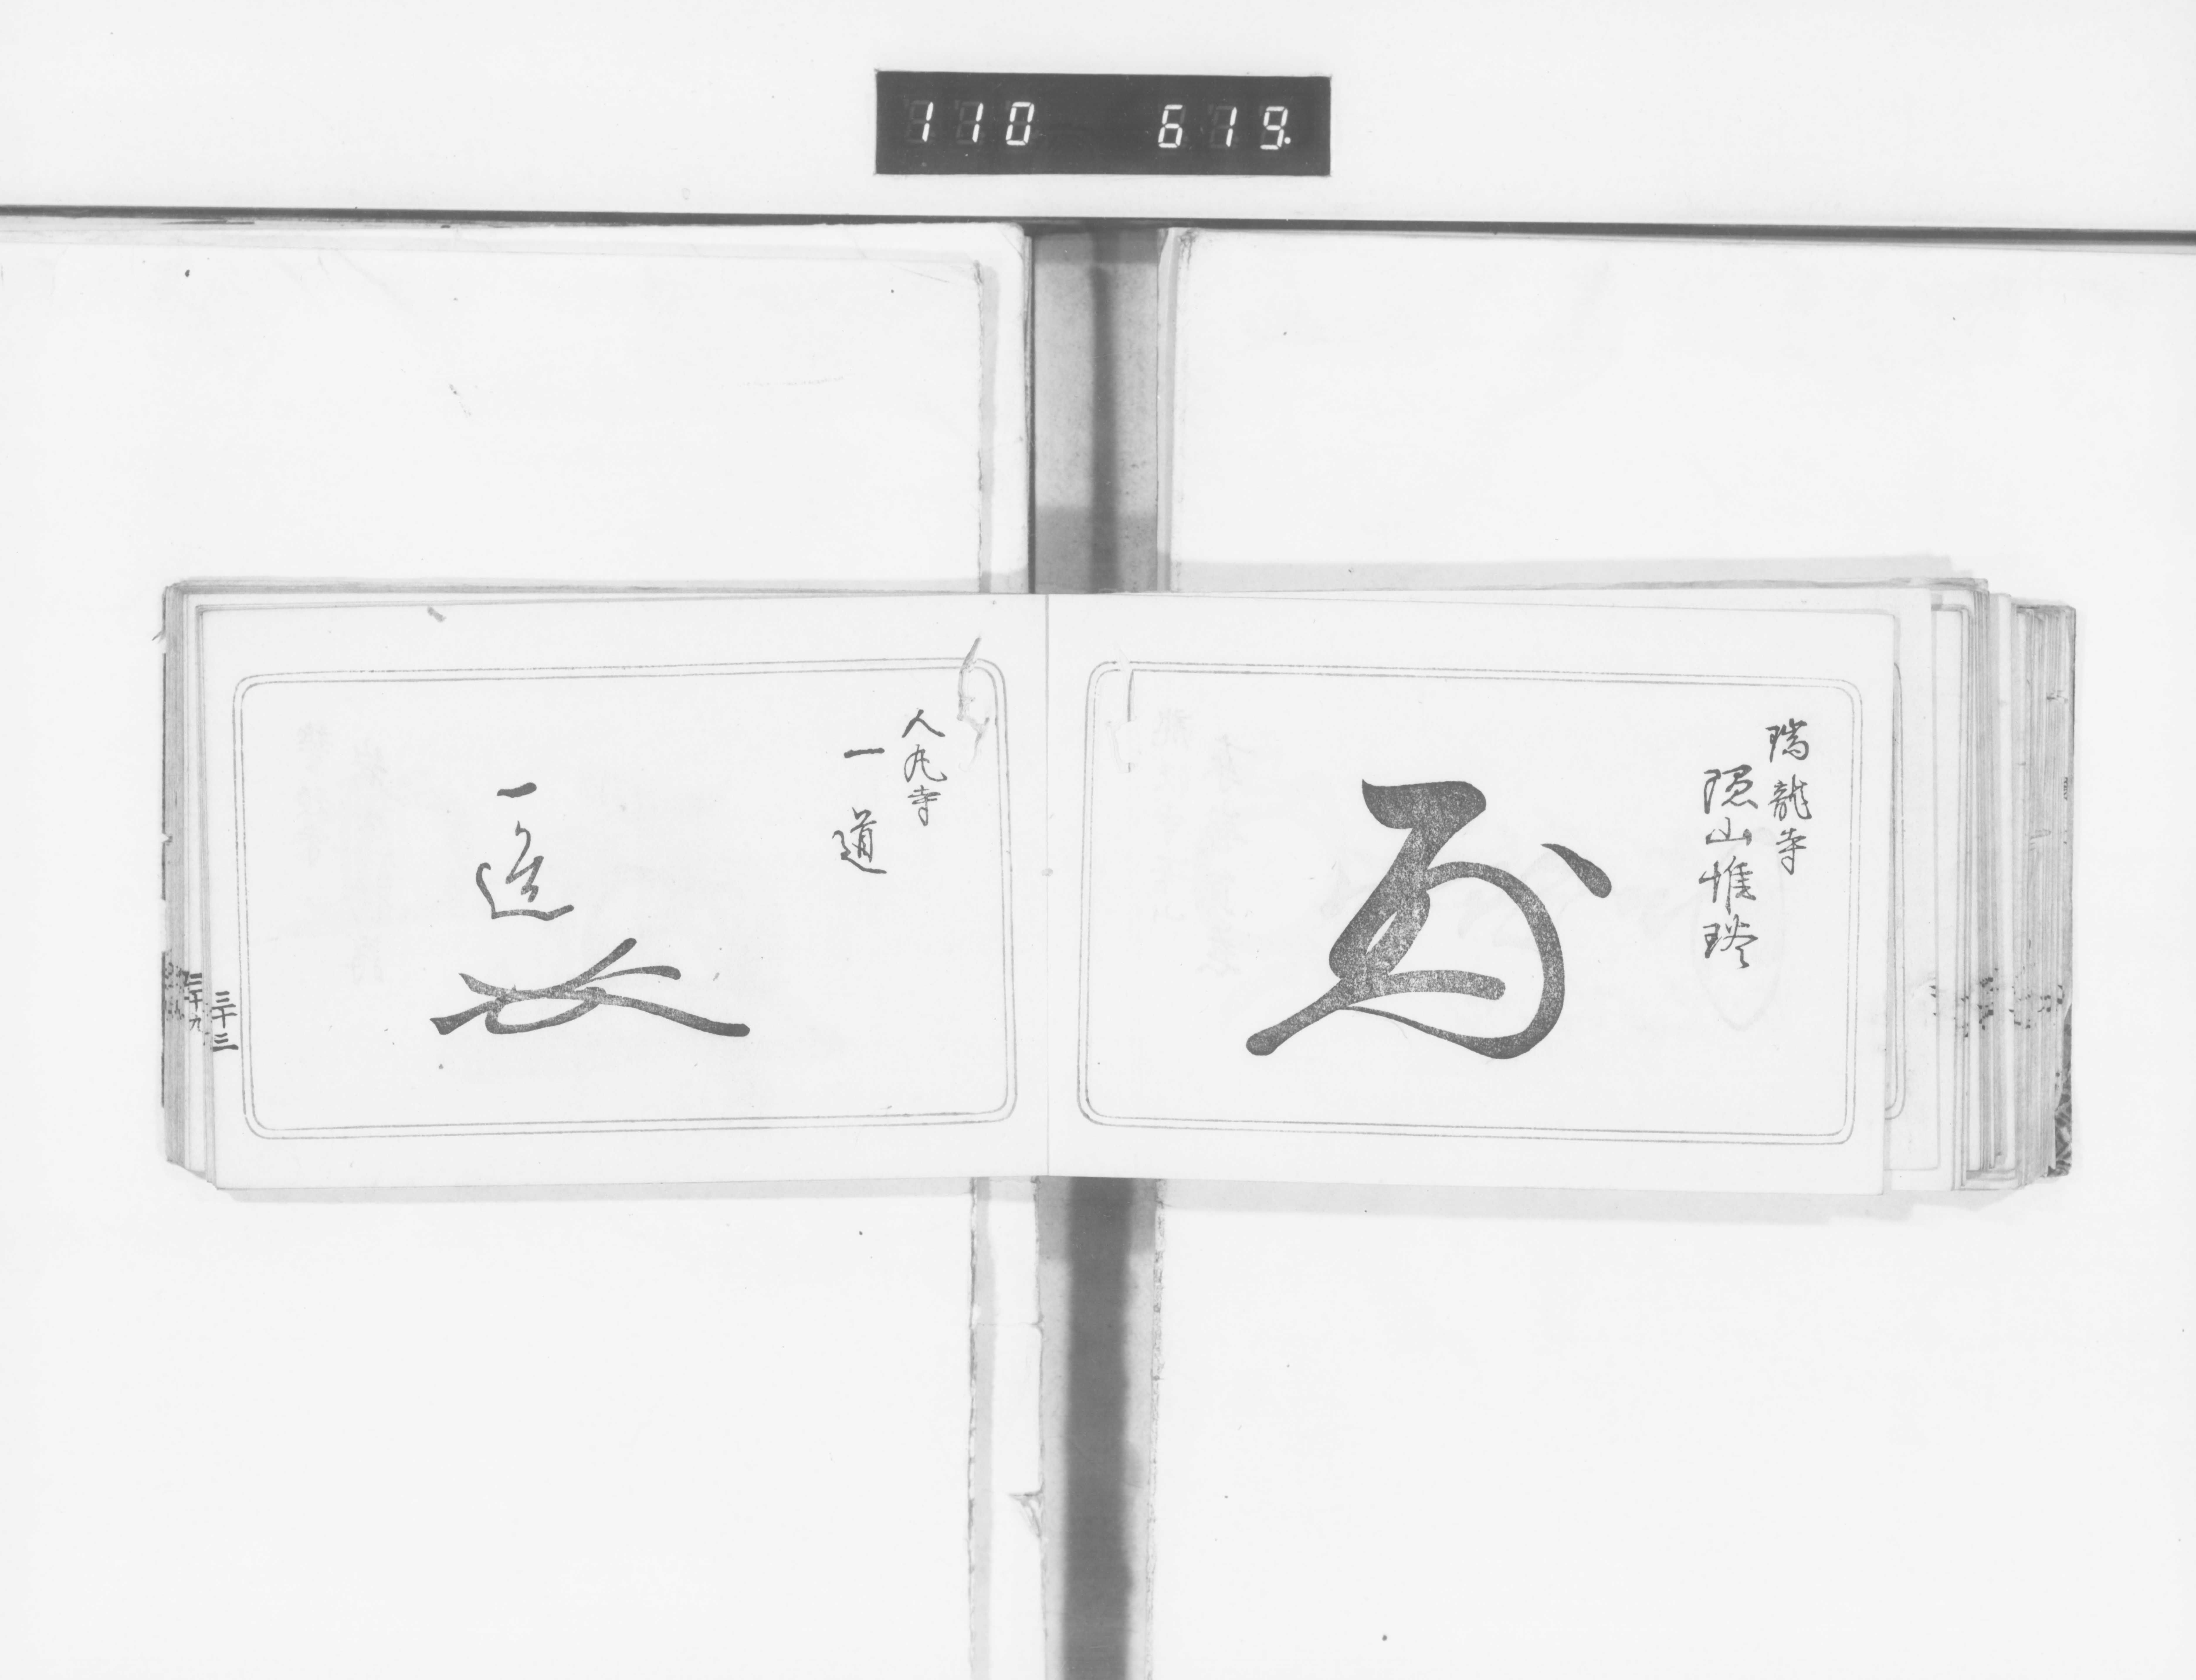 110 619
瑞龍寺
隠山惟琰
人丸寺
一道
一道
三十三
三十九